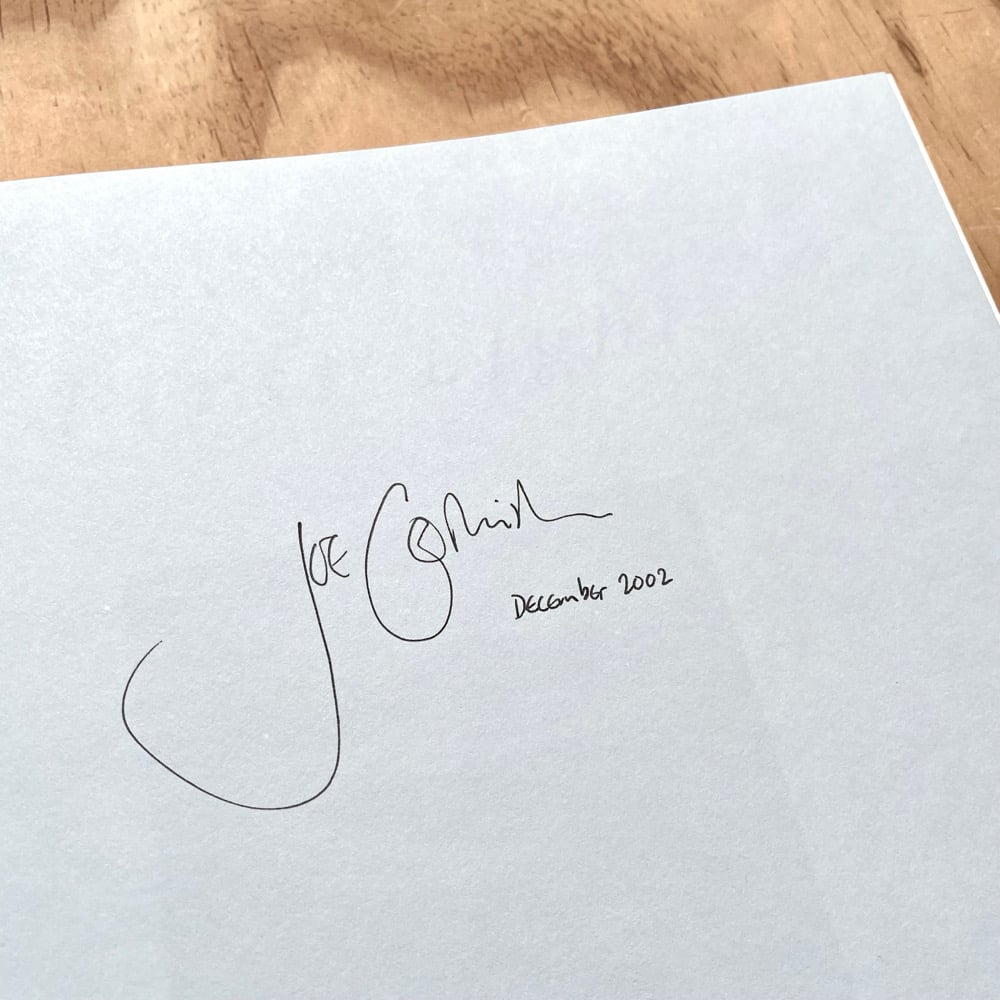 Joe Cornish
December 2002